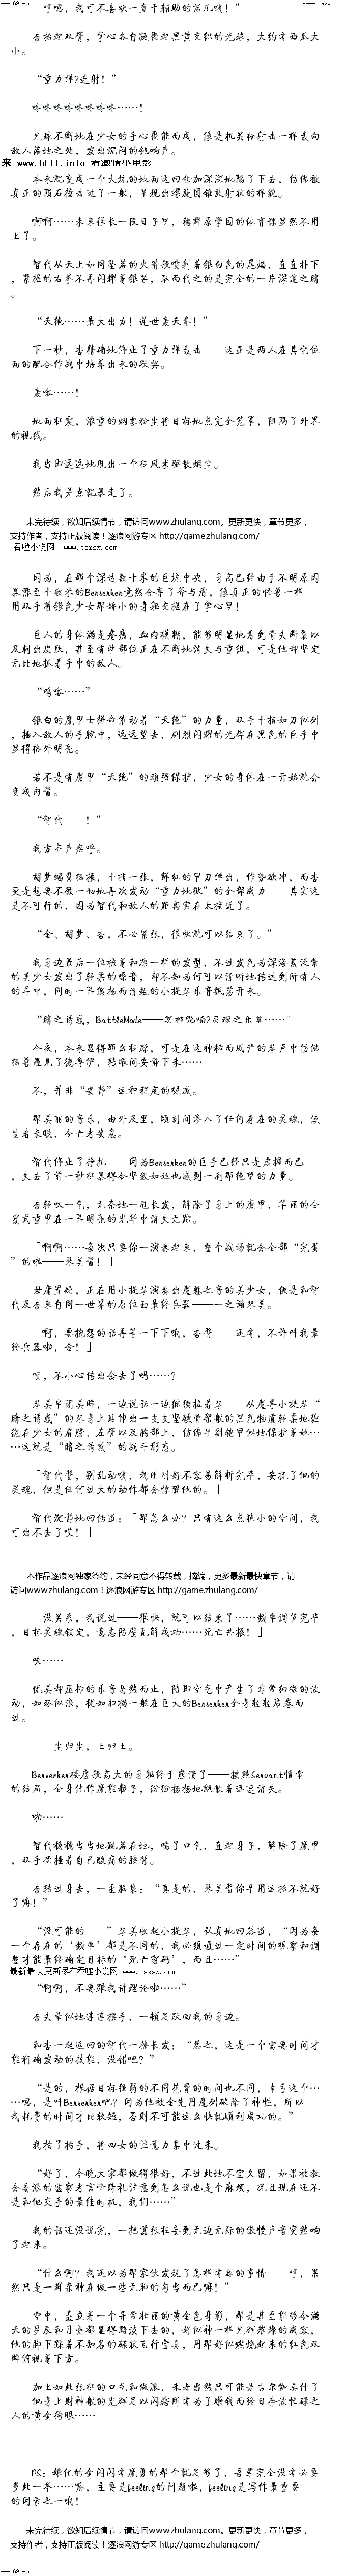 www.69zw.com www.69zw.com
哼嗯，我可不喜欢一直干辅助的活儿哦！”
杏抬起双臂，掌心各自凝聚起黑黄交织的光球，大约有西瓜大
小。
“重力弹?连射！”
咻咻咻咻咻咻咻咻……！
光球不断地在少女的手心聚能而成，像是机关枪射击一样轰向
敌人落地之处，发出沉闷的钝响声。
来 www.hL11.info 看激情小电影
本来就变成一个大坑的地面这回愈加深深地陷了下去，仿佛被
真正的陨石撞击过了一般，呈现出螺旋圆锥放射状的样貌。
啊啊……未来很长一段日子里，穗群原学园的体育课显然不用
上了。
智代从天上如同坠落的火箭般喷射着银白色的尾焰，直直扑下
，紧握的右拳不再闪耀着银芒，取而代之的是完全的一片深邃之暗
。
“天绝……最大出力！逆世轰天拳！”
下一秒，杏精确地停止了重力弹轰击——这正是两人在其它位
面的配合作战中培养出来的默契。
轰嗵……！
地面狂震，浓重的烟雾粉尘将目标地点完全笼罩，阻隔了外界
的视线。
我当即远远地甩出一个狂风术驱散烟尘。
然后我差点就暴走了。
未完待续，欲知后续情节，请访问www.zhulang.com。更新更快，章节更多，
支持作者，支持正版阅读！逐浪网游专区 http://game.zhulang.com/
吞噬小说网 www.tsxsw.com
因为，在那个深达数十米的巨坑中央，身高已经由于不明原因
暴涨至十数米的Berserker竟然舍弃了斧与盾，像真正的怪兽一样
用双手将银色少女那娇小的身躯交握在了掌心里！
巨人的身体满是疮痍，血肉模糊，能够明显地看到骨头断裂以
及刺出皮肤，甚至有些部位正在不断地消失与重组，可是他却坚定
无比地抓着手中的敌人。
“呜嗵……”
银白的魔甲士拼命催动着“天绝”的力量，双手十指如刀似剑
，插入敌人的手腕中，远远望去，剧烈闪耀的光群在黑色的巨手中
显得格外明亮。
若不是有魔甲“天绝”的顽强保护，少女的身体在一开始就会
变成肉酱。
“智代——！”
我方齐声疾呼。
胡梦蝠翼猛振，十指一张，鲜红的甲刀弹出，作势欲冲，而杏
更是想要不顾一切地再次发动“重力地狱”的全部威力——其实这
是不可行的，因为智代和敌人的距离实在太接近了。
“舍、胡梦、杏，不必紧张，很快就可以结束了。”
我身边最后一位梳着和凛一样的发型，不过发色为深海蓝泛紫
的美少女发出了轻柔的嗓音，却不知为何可以清晰地传达到所有人
的耳中，同时一阵悠扬而清越的小提琴乐音飘荡开来。
“暗之诱惑，BattleMode——冥神咒唱?灵魂之乐章……”
今夜，本来显得那么狂躁，可是在这神秘而威严的琴声中仿佛
猛兽遇见了德鲁伊，转眼间安静下来……
不，并非“安静”这种程度的观感。
那美丽的音乐，由外及里，顷刻间渗入了任何存在的灵魂，使
生者长眠，令亡者安息。
智代停止了挣扎——因为Berserker的巨手已经只是虚握而已
，失去了前一秒狂暴得令坚毅如她也感到一刹那绝望的力量。
杏轻叹一气，无奈地一甩长发，解除了身上的魔甲，华丽的全
覆式重甲在一阵明亮的光华中消失无踪。
「啊啊……每次只要你一演奏起来，整个战场就会全部“完蛋
”的啦——琴美酱！」
毋庸置疑，正在用小提琴演奏出魔魅之音的美少女，便是和智
代及杏来自同一世界的原位面最终兵器——一之濑琴美。
「啊，要抱怨的话再等一下下哦，杏酱——还有，不许叫我最
终兵器啦，舍！」
唷，不小心传出念去了吗……?
琴美半闭美眸，一边说话一边继续拉着琴——从魔导小提琴“
暗之诱惑”的琴身上延伸出一支支坚硬骨架般的黑色物质轻柔地缠
绕在少女的肩膀、左臂以及胸部上，仿佛半副铠甲似地保护着她…
…这就是“暗之诱惑”的战斗形态。
「智代酱，别乱动哦，我刚刚好不容易解析完毕，安抚了他的
灵魂，但是任何过大的动作都会惊醒他的。」
智代沉静地回传道：「那怎么办？只有这么点狭小的空间，我
可出不去了哎！」
本作品逐浪网独家签约，未经同意不得转载，摘编，更多最新最快章节，请
访问www.zhulang.com！逐浪网游专区 http://game.zhulang.com/
「没关系，我说过——很快，就可以结束了……频率调节完毕
，目标灵魂锁定，意志防壁瓦解成功……死亡共振！」
吷……
优美却压抑的乐音戛然而止，随即空气中产生了非常细微的波
动，如环似浪，犹如扫描一般在巨大的Berserker全身轻轻席卷而
过。
——尘归尘，土归土。
Berserker楼房般高大的身躯终于崩溃了——按照Servant惯常
的结局，全身化作魔能粒子，纷纷扬扬地飘散着迅速消失。
啪……
智代稳稳当当地跳落在地，喘了口气，直起身子，解除了魔甲
，双手揉捶着自己酸痛的腰背。
杏转过身去，一歪脑袋：“真是的，琴美酱你早用这招不就好
了嘛！”
“没可能的——”琴美收起小提琴，认真地回答道，“因为每
一个存在的‘频率’都是不同的，我必须通过一定时间的观察和调
整才能最终确定目标的‘死亡密码’，而且……”
最新最快更新尽在吞噬小说网 www.tsxsw.com
“啊啊，不要跟我讲理论啦……”
杏头晕似地连连摆手，一顿足跃回我的身边。
和杏一起返回的智代一捋长发：“总之，这是一个需要时间才
能精确发动的技能，没错吧？”
“是的，根据目标强弱的不同花费的时间也不同，幸亏这个…
…嗯，是叫Berserker吧？因为他被舍先用魔剑破除了神性，所以
我耗费的时间才比较短，否则不可能这么快就顺利成功的。”
我拍了拍手，将四女的注意力集中过来。
“好了，今晚大家都做得很好，不过此地不宜久留，如果被教
会委派的监察者言峰绮礼注意到怎么说也是个麻烦，况且现在还不
是和他交手的最佳时机，我们……”
我的话还没说完，一把嚣张狂妄到无边无际的傲慢声音突然响
了起来。
“什么啊？我还以为那家伙发现了怎样有趣的事情——哼，果
然只是一群杂种在做一些无聊的勾当而已嘛！”
空中，矗立着一个异常壮丽的黄金色身影，那是甚至能够令满
天的星辰和月亮都显得黯淡下去的，好似神一样光辉璀璨的威容，
他的脚下踩着不知名的碟状飞行宝具，用那好似燃烧起来的红色双
眸俯视着下方。
加上如此张狂的口气和做派，来者当然只可能是吉尔伽美什了
——他身上财神般的光辉足以闪瞎所有为了赚钱而终日奔波忙碌之
人的黄金狗眼……
PS：娘化的金闪闪有魔勇的那个就足够了，吾辈完全没有必要
多此一举……嘛，主要是feeling的问题啦，feeling是写作最重要
的因素之一哦！
未完待续，欲知后续情节，请访问www.zhulang.com。更新更快，章节更多，
支持作者，支持正版阅读！逐浪网游专区 http://game.zhulang.com/
www.69zw.com